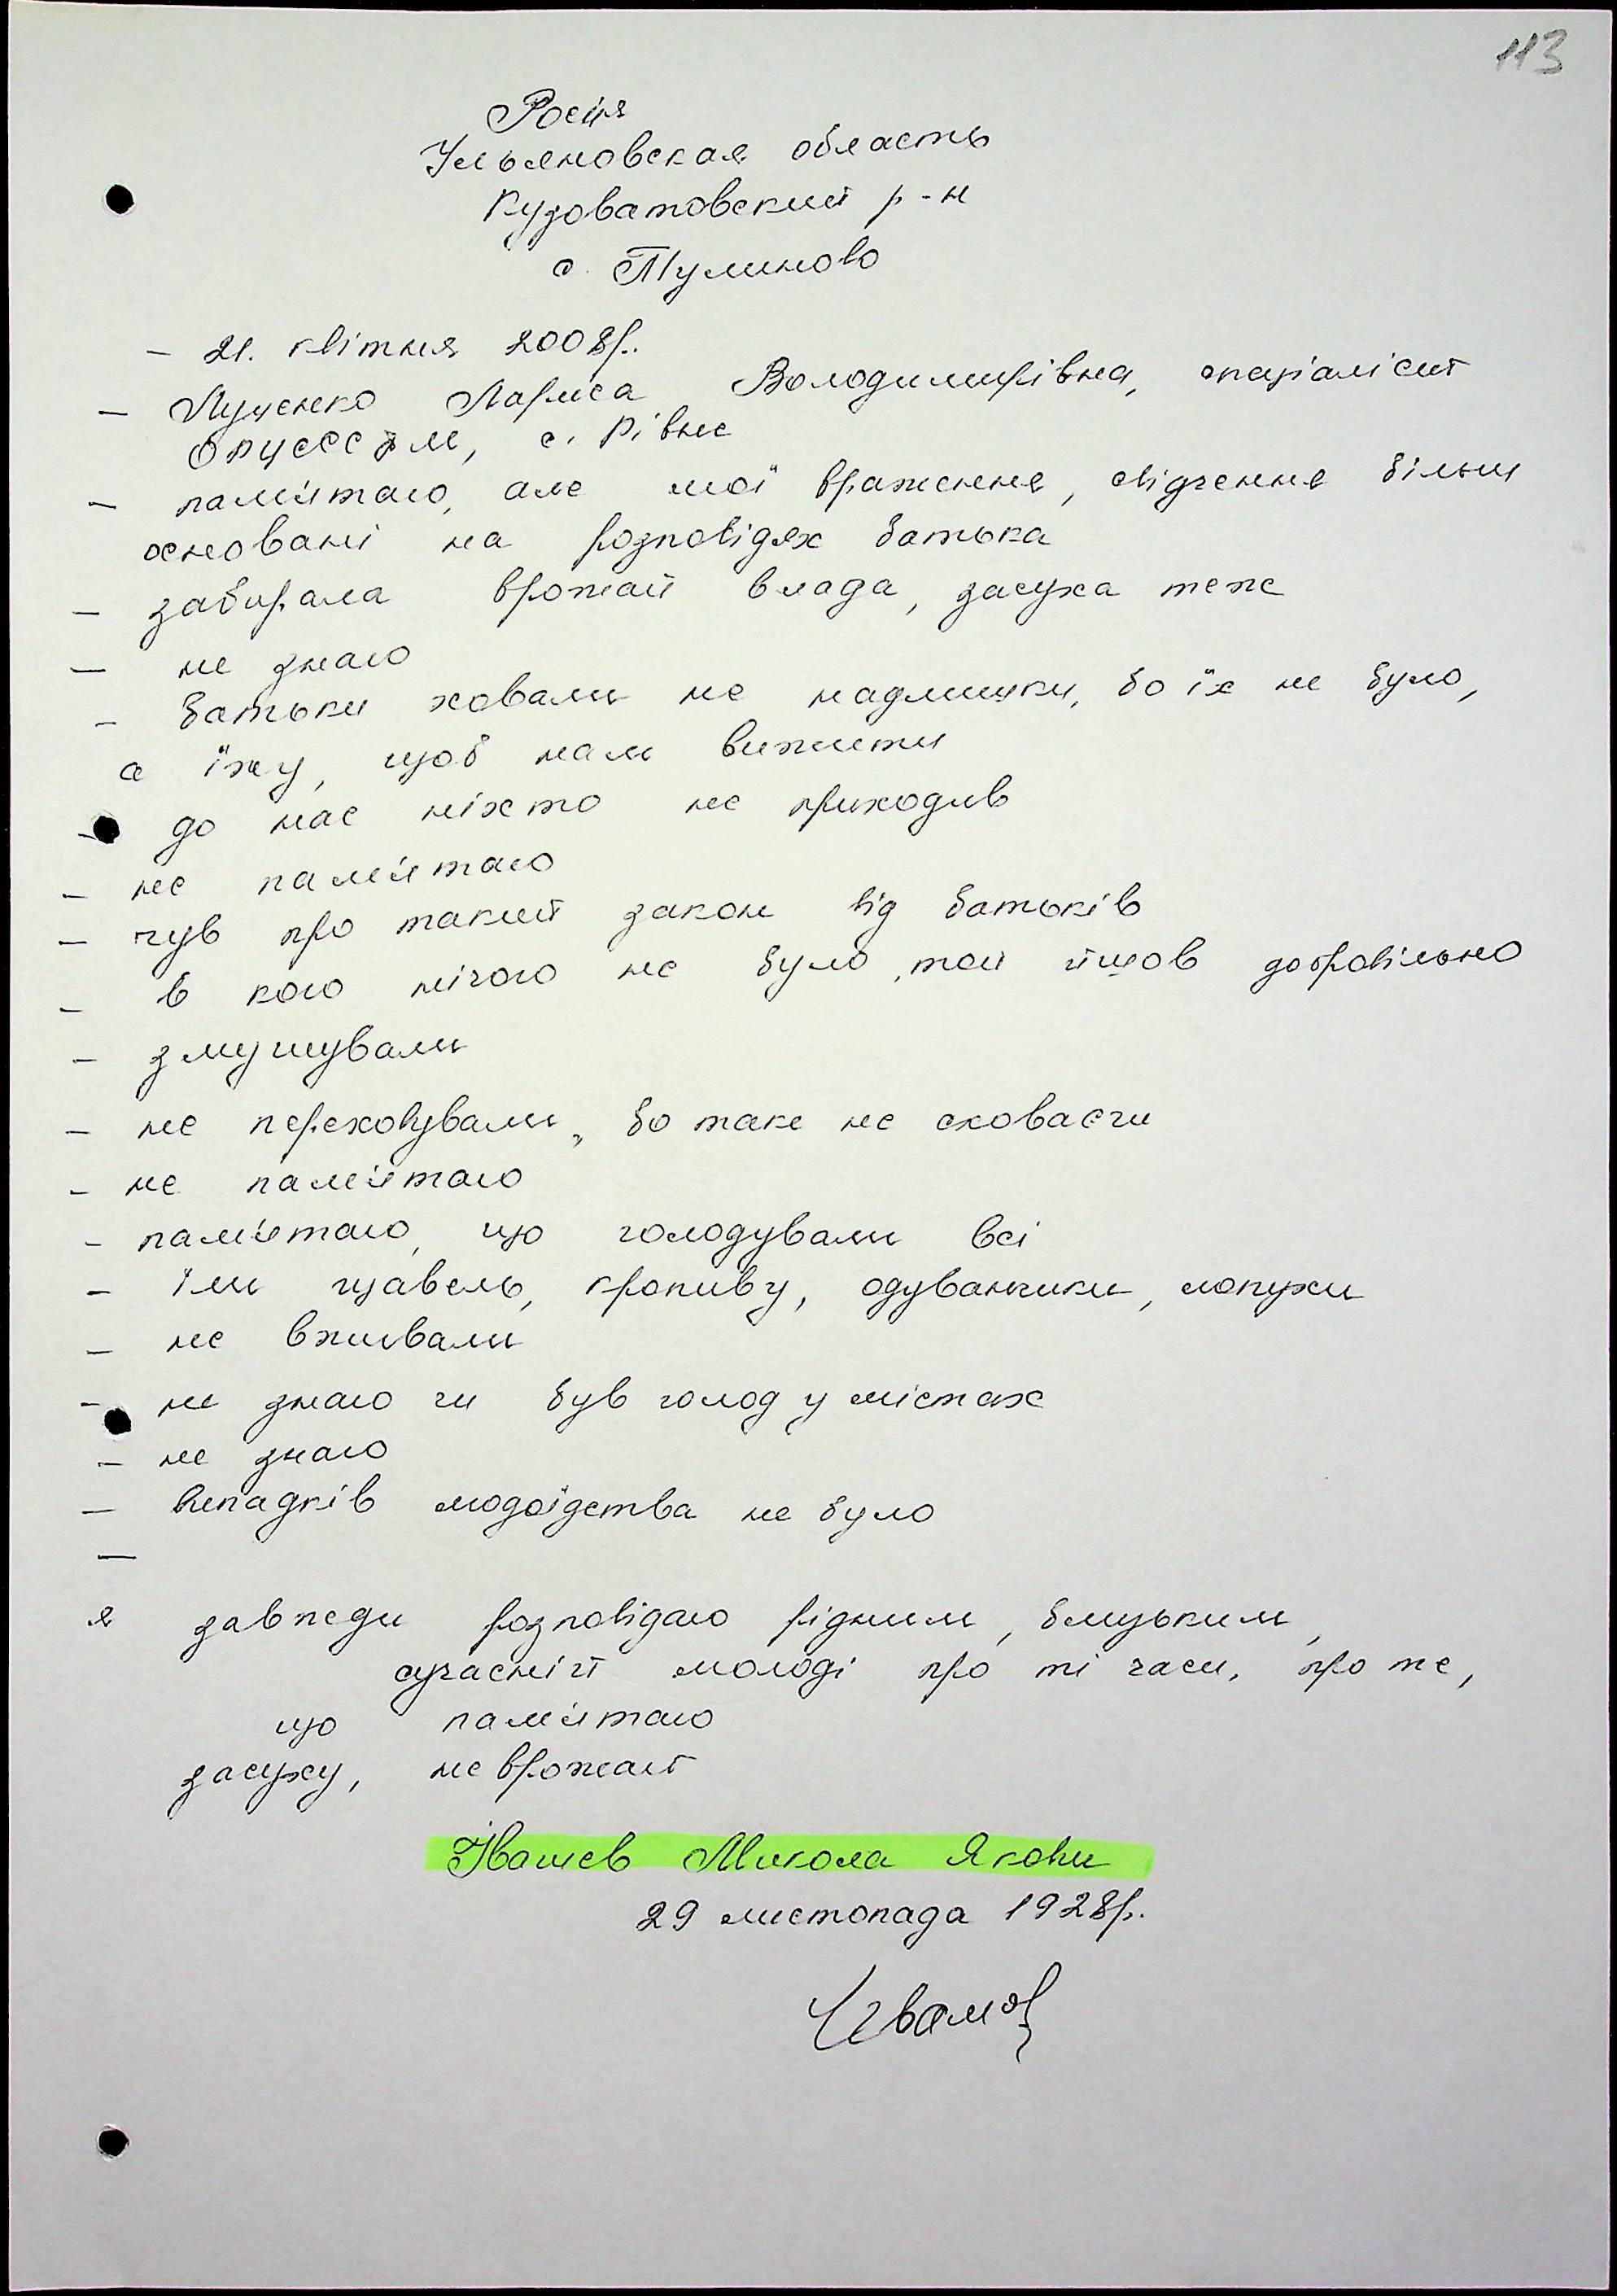 113
Росія
Ульяновская область
Кузоватовский р-н
с. Тулиново
- 21. квітня 2008р.
- Луценко Лариса Володимирівна, спеціаліст
ОРЦСССДМ, с. Рівне
- пам'ятаю, але мої враження, свідчення більш
основані на розповідях батька
- забирала врожай влада, засуха теж
- не знаю
- батьки ховали не надлишки, бо їх не було,
а їжу, щоб нам вижити
- до нас ніхто не приходив
- не пам'ятаю
- чув про такий закон від батьків
- в кого нічого не було, той йшов добровільно
- змушували
- не переховували, бо таке не сховаєш
- не пам'ятаю
- пам'ятаю, що голодували всі
- їли щавель, кропиву, одуванчики, лопухи
- не вживали
- не знаю чи був голод у містах
- не знаю
- випадків людоїдства не було
-
я завжди розповідаю рідним, близьким,
сучасній молоді про ті часи, про те,
що пам'ятаю
засуху, неврожай
Микола Якович
29 листопада 1928р.